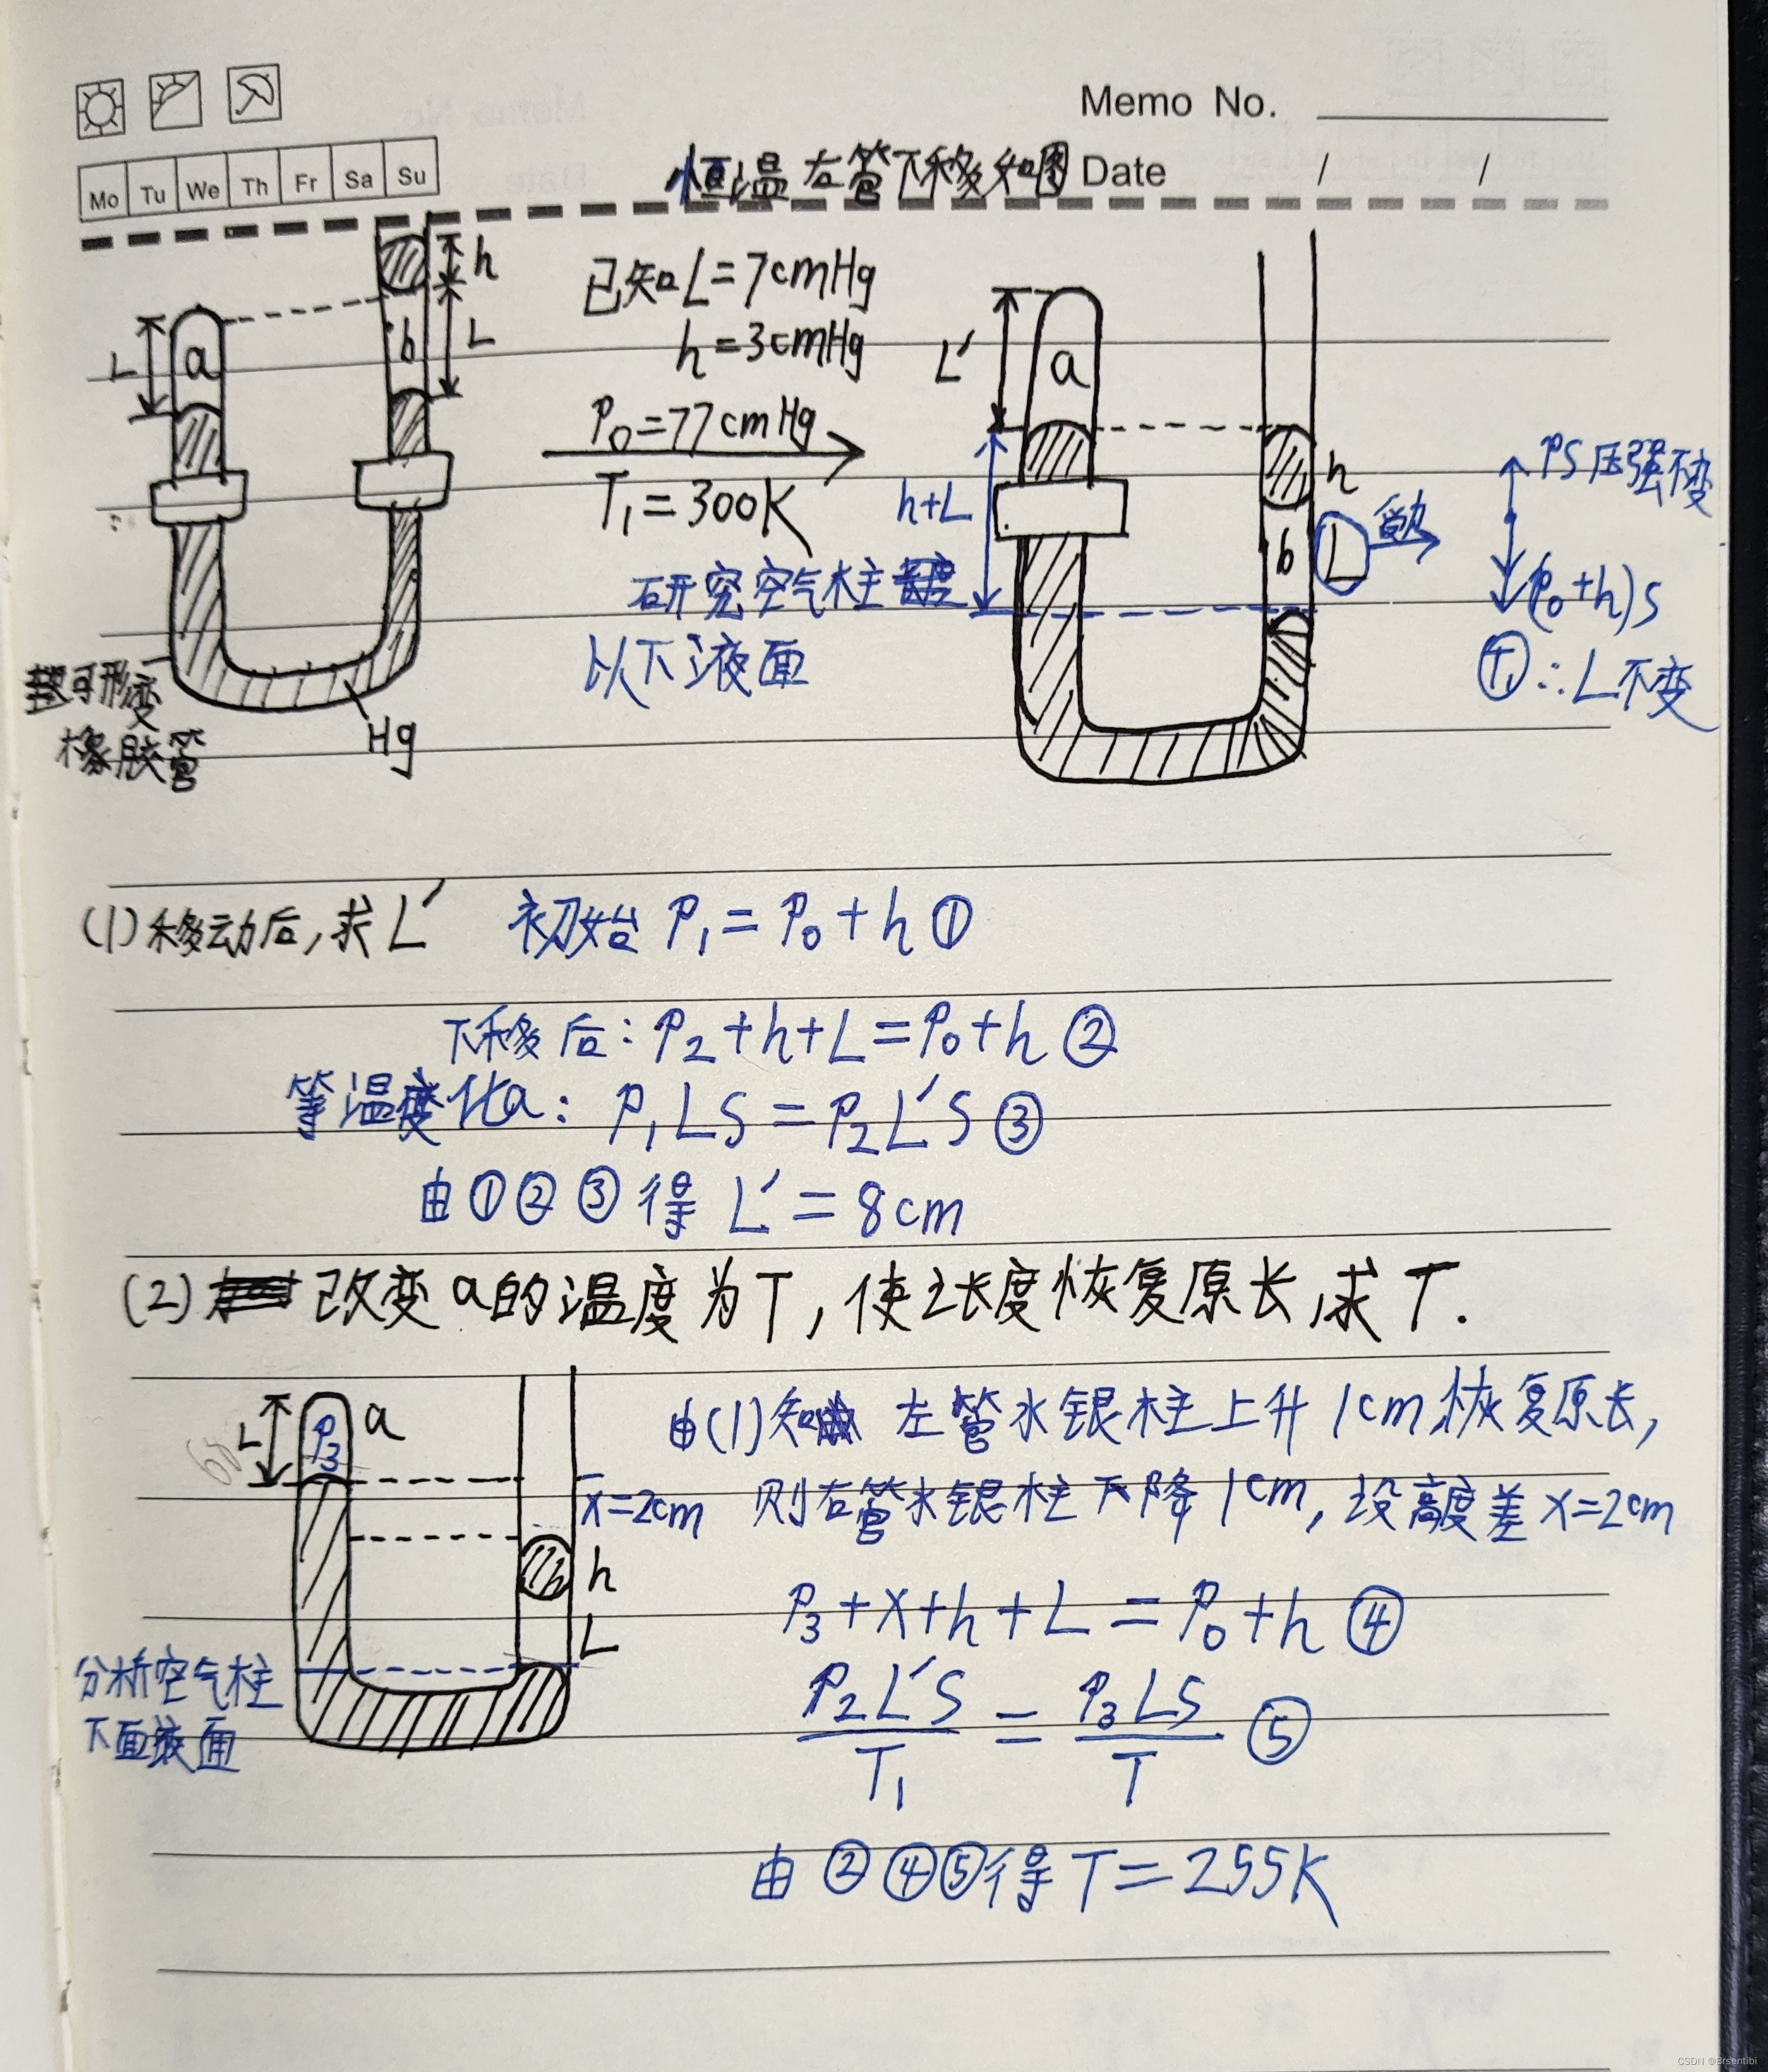 Memo No.
Mo Tu We Th Fr Sa Su
恒温 右管下移如图 Date / /
h
已知L=7cmHg
h=3cmHg
L a b L
P₀=77cmHg
T₁=300K
可形变
橡胶管
Hg
L′ a
h+L
h
b L
研究空气柱
以下液面
PS 压强不变
(P₀+h)S
T₁ ∴L不变
(1)移动后,求L′ 初始 P₁=P₀+h ①
下移后:P₂+h+L=P₀+h ②
等温变化a: P₁LS=P₂L′S ③
由①②③得 L′=8cm
(2) 改变a的温度为T,使L长度恢复原长,求T.
L P₃ a
由(1)知 左管水银柱上升1cm恢复原长,
x=2cm 则右管水银柱下降1cm,设高度差x=2cm
h
L
P₃+x+h+L=P₀+h ④
分析空气柱
下面液面
P₂L′S/T₁=P₃LS/T ⑤
由②④⑤得T=255K
CSDN @Brsentibi